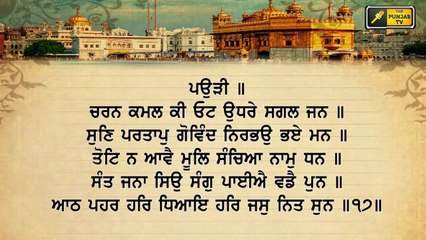 THE
PUNJAB
TV
ਪਉੜੀ ॥
ਚਰਨ ਕਮਲ ਕੀ ਓਟ ਉਧਰੇ ਸਗਲ ਜਨ ॥
ਸੁਣਿ ਪਰਤਾਪੁ ਗੋਵਿੰਦ ਨਿਰਭਉ ਭਏ ਮਨ ॥
ਤੋਟਿ ਨ ਆਵੈ ਮੂਲਿ ਸੰਚਿਆ ਨਾਮੁ ਧਨ ॥
ਸੰਤ ਜਨਾ ਸਿਉ ਸੰਗੁ ਪਾਈਐ ਵਡੈ ਪੁਨ ॥
ਆਠ ਪਹਰ ਹਰਿ ਧਿਆਇ ਹਰਿ ਜਸੁ ਨਿਤ ਸੁਨ ॥੧੭॥